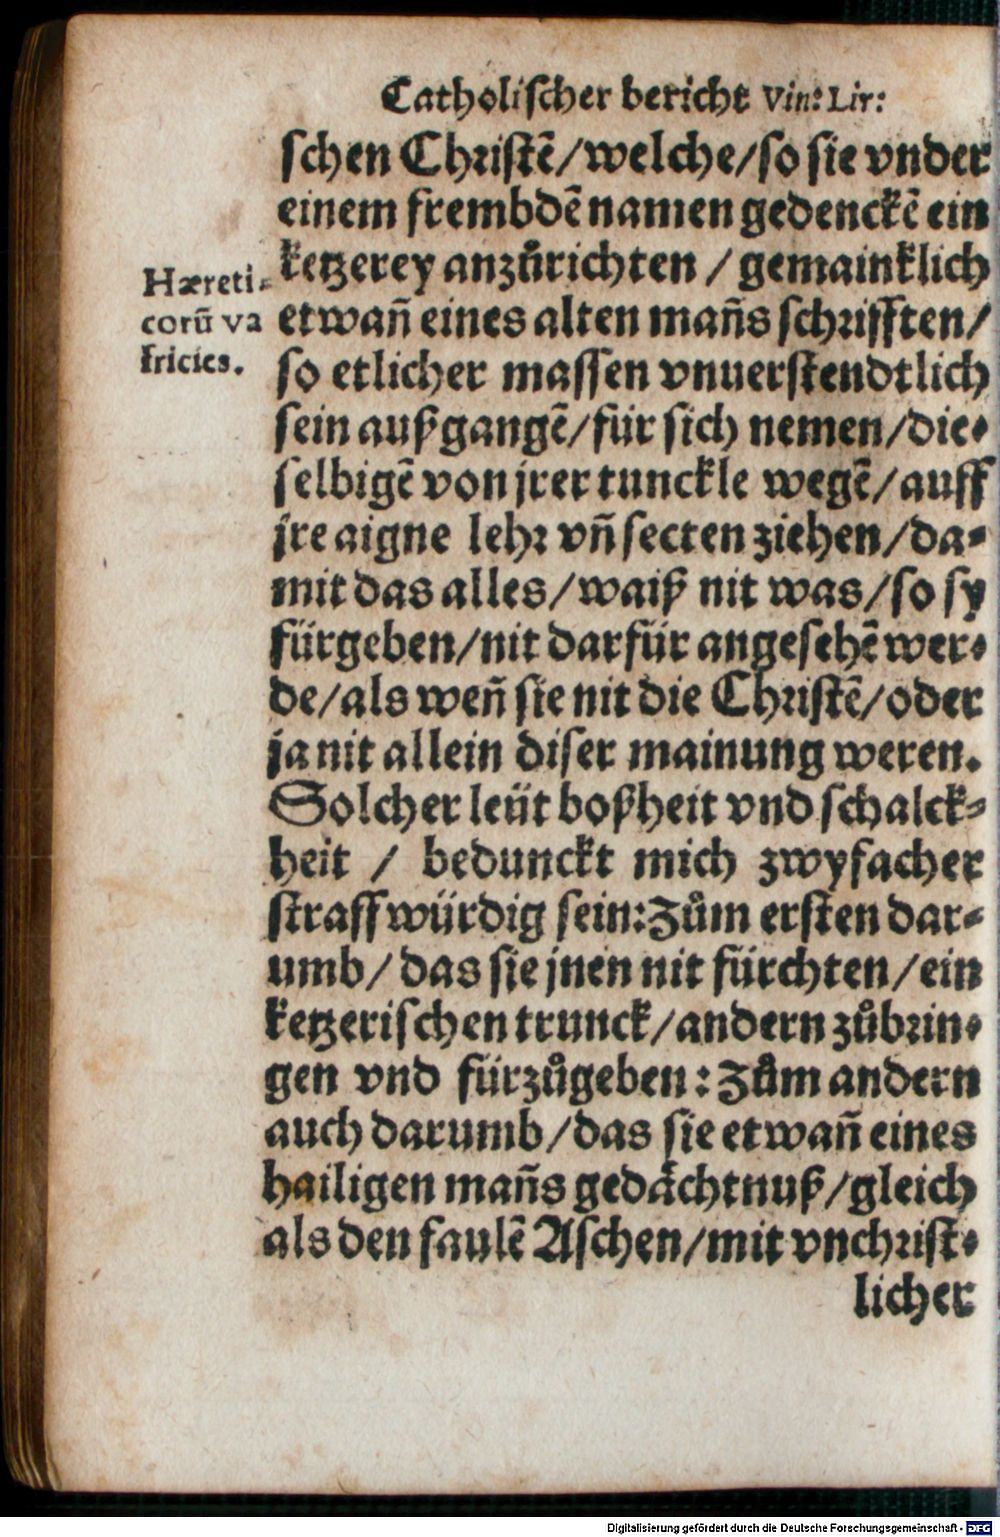 Catholischer bericht Vin: Lir:
schen Christē/welche/so sie vnder
einem frembdē namen gedenckē ein
ketzerey anzůrichten / gemainklich
Hæreti-
corū va
fricies.
etwañ eines alten mañs schrifften/
so etlicher massen vnuerstendtlich
sein außgangē/für sich nemen/die-
selbigē von jrer tunckle wegē/auff
jre aigne lehr vñ secten ziehen/da-
mit das alles/waiß nit was/so sy
fürgeben/nit darfür angesehē wer-
de/als weñ sie nit die Christē/oder
ja nit allein diser mainung weren.
Solcher leüt boßheit vnd schalck-
heit / bedunckt mich zwyfacher
straff würdig sein:Zům ersten dar-
umb/das sie jnen nit fürchten/ein
ketzerischen trunck/andern zůbrin-
gen vnd fürzůgeben:Zům andern
auch darumb/das sie etwañ eines
hailigen mañs gedächtnuß/gleich
als den faulē Aschen/mit vnchrist-
licher
Digitalisierung gefördert durch die Deutsche Forschungsgemeinschaft - DFG